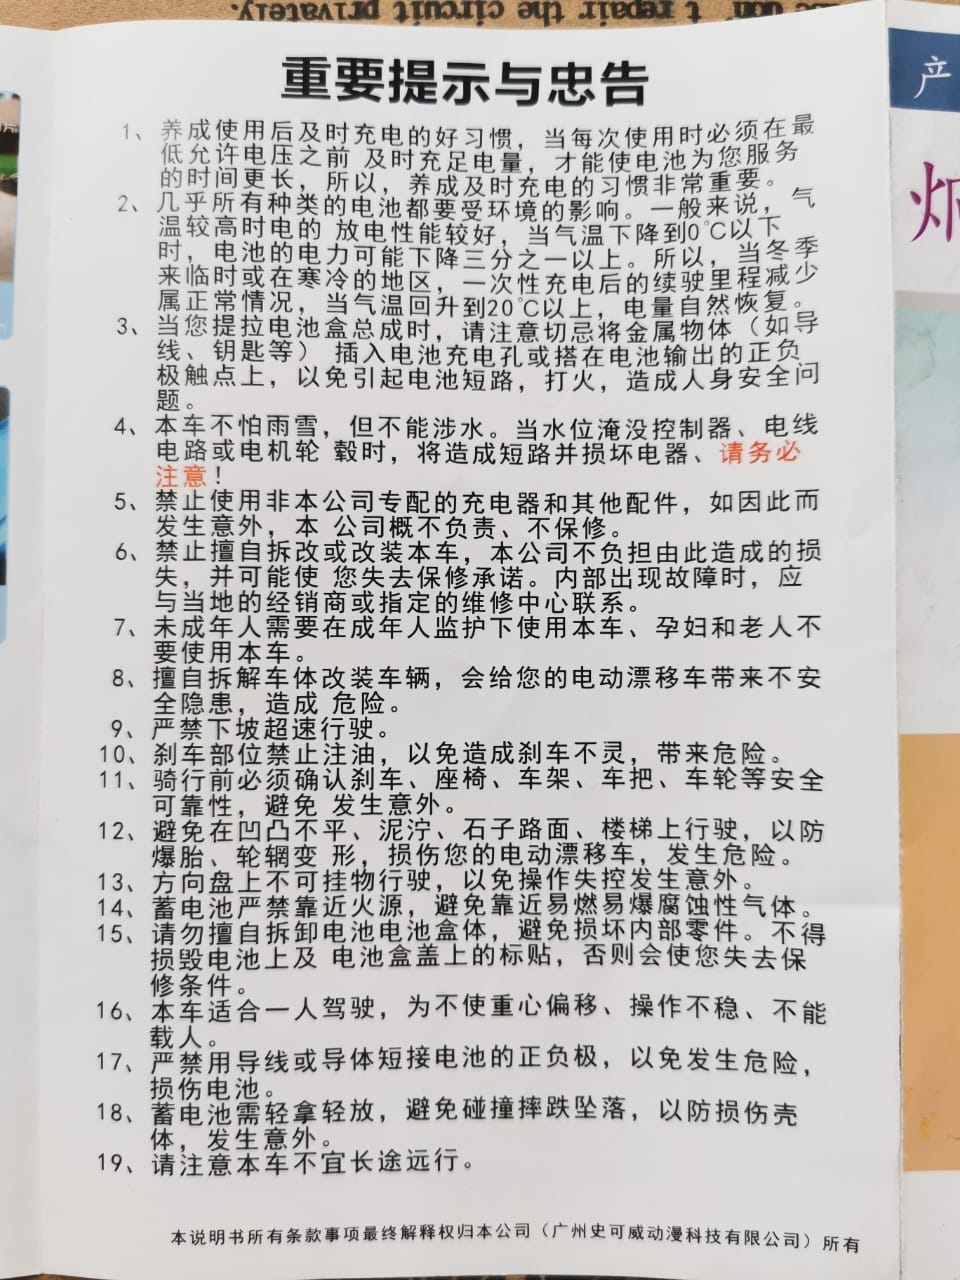 use don't repair the circuit privately.
重要提示与忠告
1、养成使用后及时充电的好习惯，当每次使用时必须在最
低允许电压之前 及时充足电量，才能使电池为您服务
的时间更长，所以，养成及时充电的习惯非常重要。
2、几乎所有种类的电池都要受环境的影响。一般来说，气
温较高时电的 放电性能较好，当气温下降到0℃以下
时，电池的电力可能下降三分之一以上。所以，当冬季
来临时或在寒冷的地区，一次性充电后的续驶里程减少
属正常情况，当气温回升到20℃以上，电量自然恢复。
3、当您提拉电池盒总成时，请注意切忌将金属物体（如导
线、钥匙等） 插入电池充电孔或搭在电池输出的正负
极触点上，以免引起电池短路，打火，造成人身安全问
题。
4、本车不怕雨雪，但不能涉水。当水位淹没控制器、电线
电路或电机轮 毂时，将造成短路并损坏电器、请务必
注意！
5、禁止使用非本公司专配的充电器和其他配件，如因此而
发生意外，本 公司概不负责、不保修。
6、禁止擅自拆改或改装本车，本公司不负担由此造成的损
失，并可能使 您失去保修承诺。内部出现故障时，应
与当地的经销商或指定的维修中心联系。
7、未成年人需要在成年人监护下使用本车、孕妇和老人不
要使用本车。
8、擅自拆解车体改装车辆，会给您的电动漂移车带来不安
全隐患，造成 危险。
9、严禁下坡超速行驶。
10、刹车部位禁止注油，以免造成刹车不灵，带来危险。
11、骑行前必须确认刹车、座椅、车架、车把、车轮等安全
可靠性，避免 发生意外。
12、避免在凹凸不平、泥泞、石子路面、楼梯上行驶，以防
爆胎、轮辋变 形，损伤您的电动漂移车，发生危险。
13、方向盘上不可挂物行驶，以免操作失控发生意外。
14、蓄电池严禁靠近火源，避免靠近易燃易爆腐蚀性气体。
15、请勿擅自拆卸电池电池盒体，避免损坏内部零件。不得
损毁电池上及 电池盒盖上的标贴，否则会使您失去保
修条件。
16、本车适合一人驾驶，为不使重心偏移、操作不稳、不能
载人。
17、严禁用导线或导体短接电池的正负极，以免发生危险，
损伤电池。
18、蓄电池需轻拿轻放，避免碰撞摔跌坠落，以防损伤壳
体，发生意外。
19、请注意本车不宜长途远行。
本说明书所有条款事项最终解释权归本公司（广州史可威动漫科技有限公司）所有
产